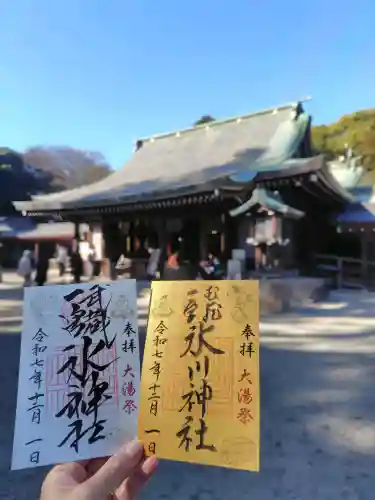 奉拝
大湯祭
武蔵
一宮
氷川神社
令和七年十二月一日
奉拝
大湯祭
むさし
一宮
氷川神社
令和七年十二月一日